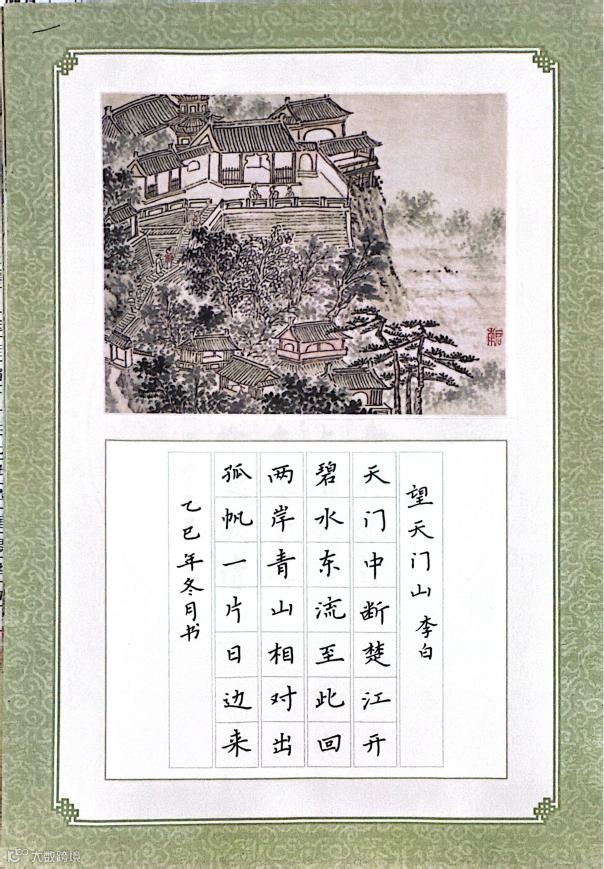 望天门山 李白
天门中断楚江开
碧水东流至此回
两岸青山相对出
孤帆一片日边来
乙巳年冬月书
大数跨境